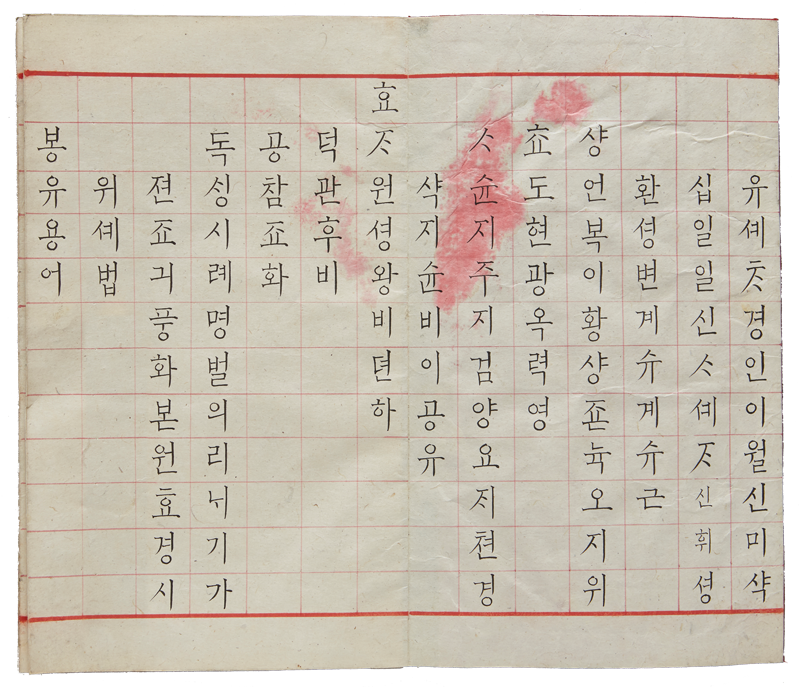 유셰ᄎᆞ경인이월신미샥
십일일신ᄉᆞ셰ᄌᆞ신휘셩
환셩변계슈계슈근
샹언복이황샹죤뉵오지위
쵸도현광옥력영
ᄉᆞ슌지주지검양요ᄌᆡ쳔경
샥지슌비이공유
효ᄌᆞ원셩왕비뎐하
덕관후비
공참죠화
독ᄉᆡᆼ시례명벌의리ᄂᆡ기가
젼죠긔풍화본원효경시
위셰법
봉유용어